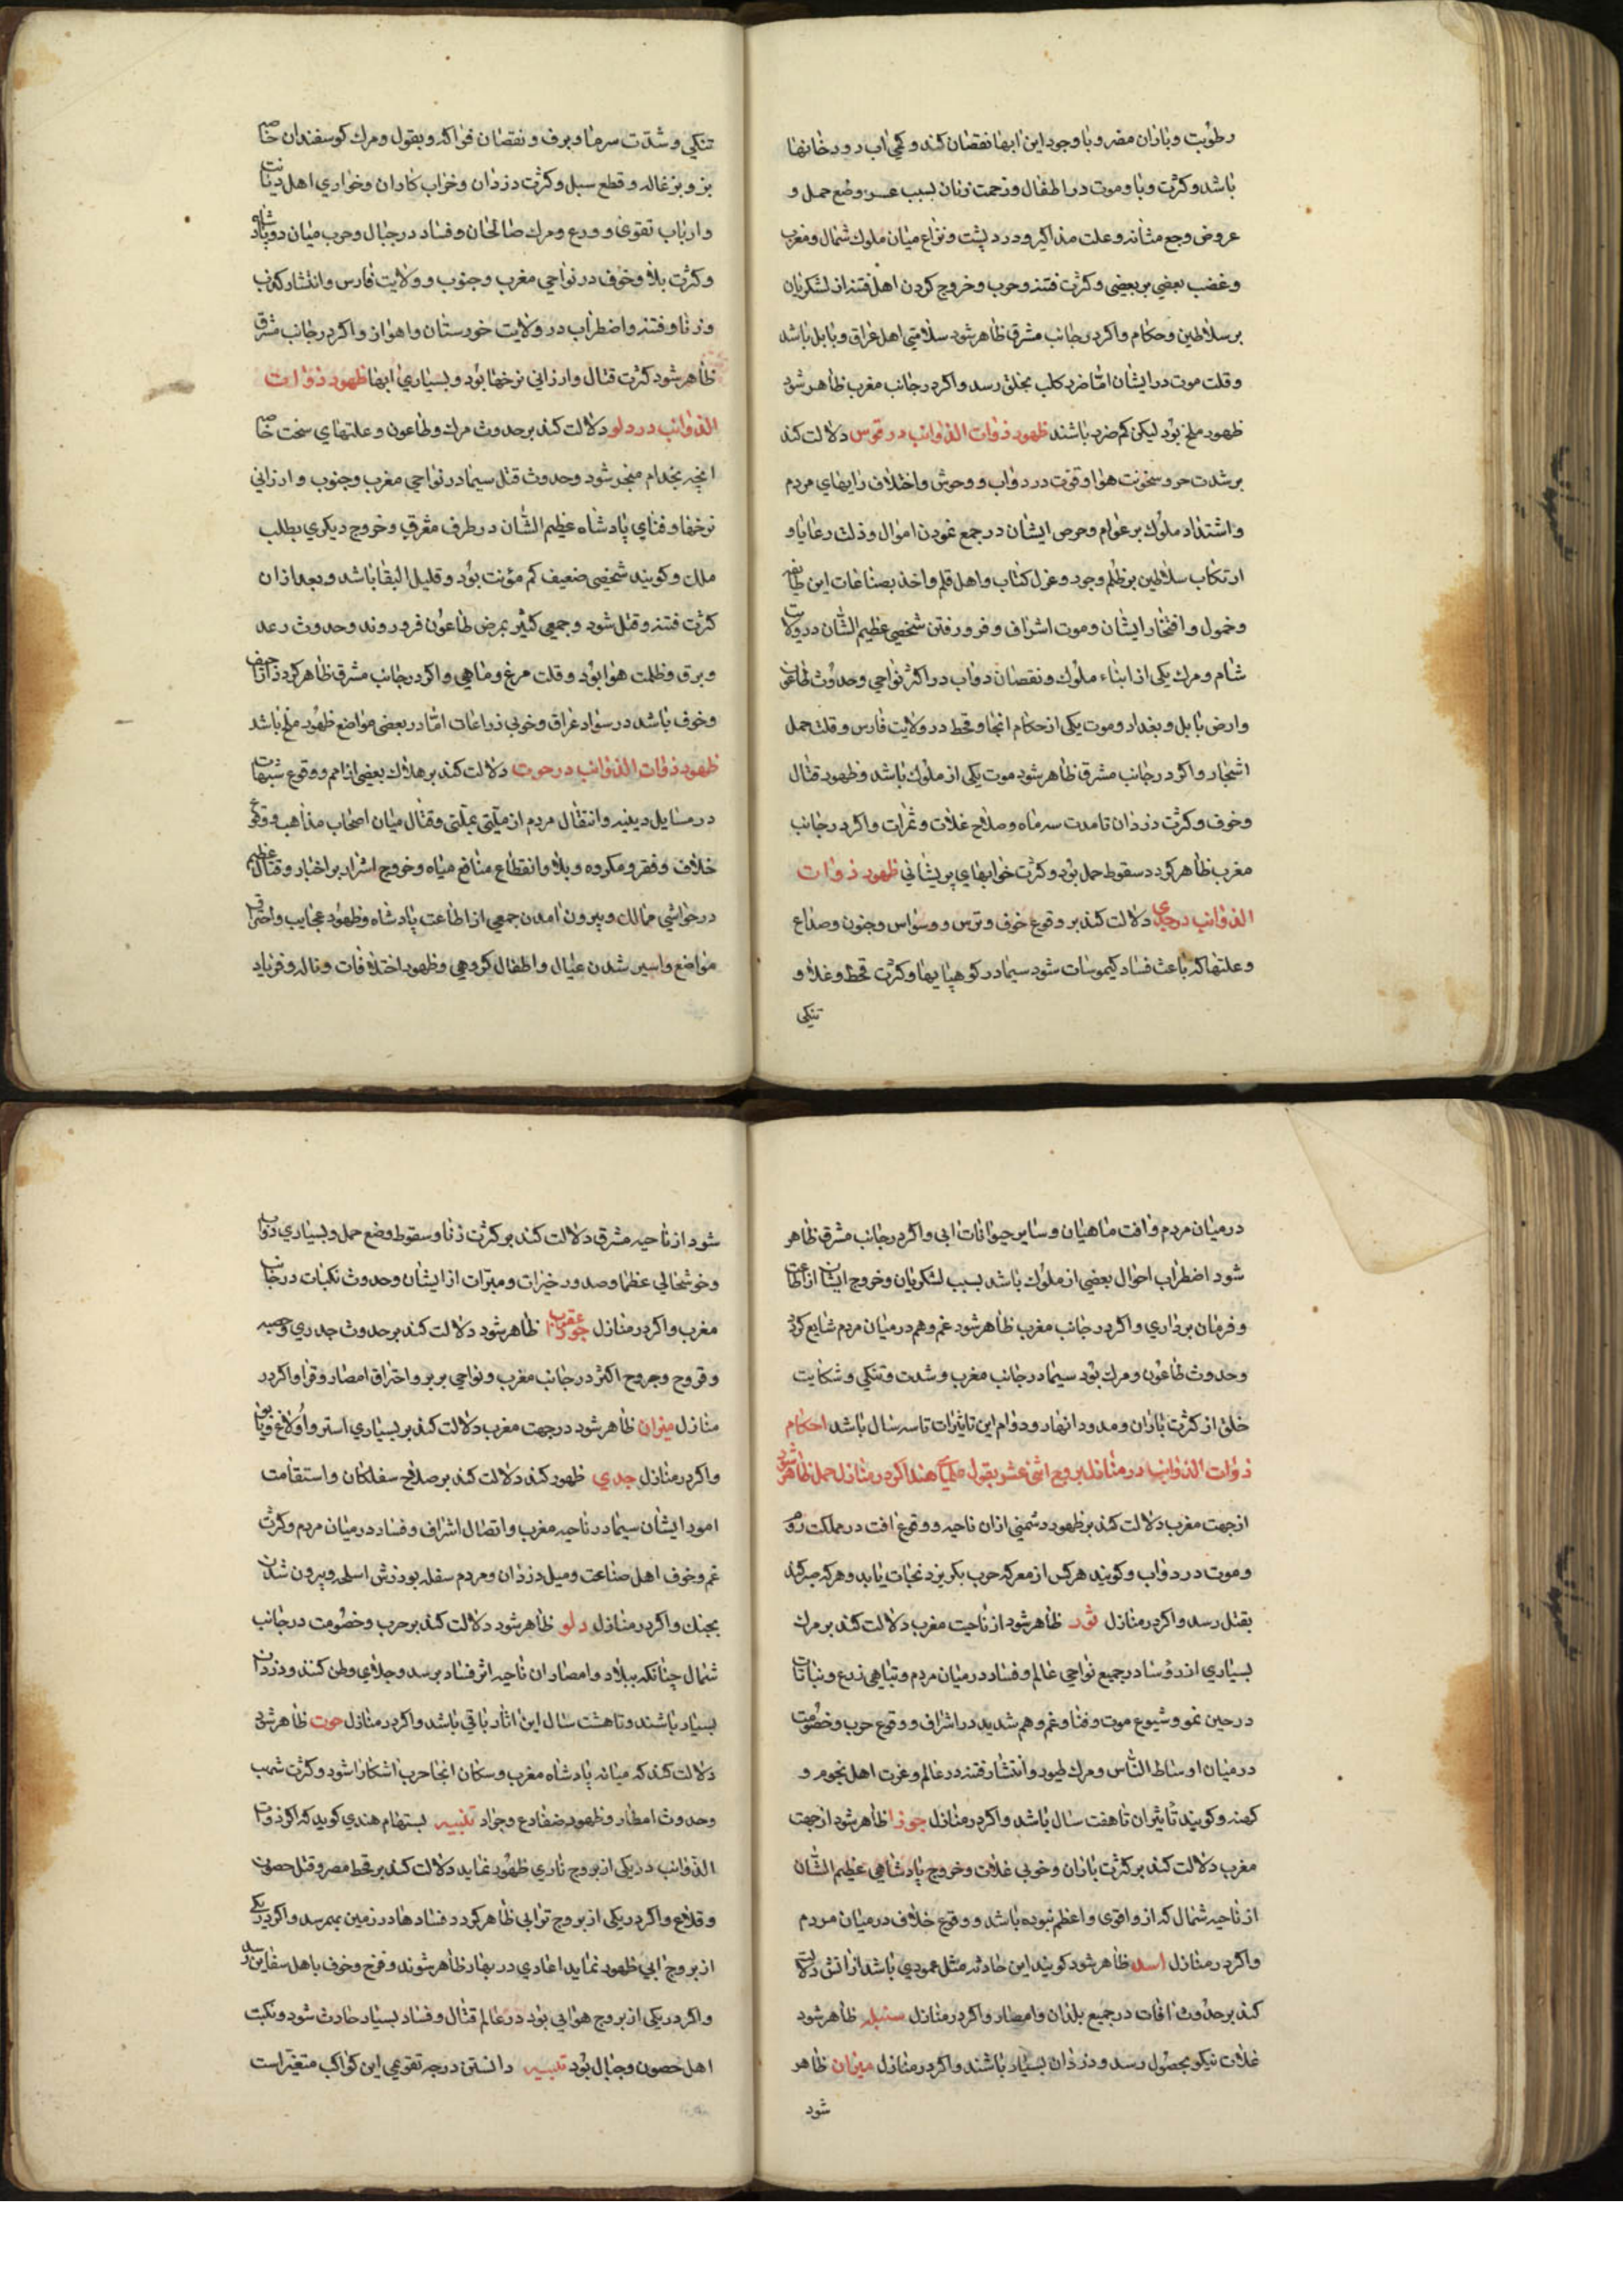 رطوبت و باران مضر و با وجود این ابها نقصان کند و کمی اب رودخانها
باشد و کثرت وبا و موت در اطفال و زحمت زنان بسبب عسر وضع حمل و
عروض وجع مثانه و علت مذاکیر و درد پشت و نزاع میان ملوک شمال و مغرب
و غضب بعضی بر بعضی و کثرت فتنه و حرب و خروج کردن اهل فتنه از لشکریان
بر سلاطین و حکام و اکر در جانب مشرق ظاهر شود سلامتی اهل عراق و بابل باشد
و قلت موت در ایشان اما ضرر کلب بخلق رسد و اکر در جانب مغرب ظاهر شود
ظهور ملخ بود لیکن کم ضرر باشند ظهور ذوات الذوائب در قوس دلالت کند
بر شدت حر و سخونت هوا و قوت در دواب و وحوش و اختلاف رایهای مردم
و اشتداد ملوک بر عوام و حرص ایشان در جمع نمودن اموال و ذلت رعایا و
ارتکاب سلاطین بر ظلم وجود و عزل کتاب و اهل قلم و اخذ بضاعات این طایفه
و خمول و افتخار ایشان و موت اشراف و فرو رفتن شخصی عظیم الشان در ولایت
شام و مرک یکی از ابناء ملوک و نقصان دواب در اکثر نواحی و حدوث طاعون
وارض بابل و بغداد و موت یکی از حکام انجا و قحط در ولایت فارس و قلت حمل
اشجار و اکر در جانب مشرق ظاهر شود موت یکی از ملوک باشد و ظهور قتال
و خوف و کثرت دزدان تا مدت سه ماه و صلاح غلات و ثمرات و اکر در جانب
مغرب ظاهر کردد سقوط حمل بود و کثرت خوابهای پریشانی ظهور ذوات
الذوائب در جدی دلالت کند بر وقوع خوف و ترس و وسواس و جنون و صداع
و علتها که باعث فساد کیموسات شود سیما در کوهپایها و کثرت قحط و غلا و
تنکی
تنکی و شدت سرما و برف و نقصان فواکه و بقول و مرک کوسفندان خاصه
بز و بزغاله و قطع سبل و کثرت دزدان و خراب کاران و خواری اهل دیانت
و ارباب تقوی و ورع و مرک صالحان و فساد در جبال و حرب میان دو پادشاه
و کثرت بلا و خوف در نواحی مغرب و جنوب و ولایت فارس و انتشار کذب
و زنا و فتنه و اضطراب در ولایت خورستان و اهواز و اکر در جانب مشرق
ظاهر شود کثرت قتال و ارزانی نرخها بود و بسیاری ابها ظهور ذوات
الذوائب در دلو دلالت کند بر حدوث مرک و طاعون و علتهای سخت خاصه
انچه بجذام منجر شود و حدوث قتل سیما در نواحی مغرب و جنوب و ارزانی
نرخها و فنای پادشاه عظیم الشان در طرف مشرق و خروج دیکری بطلب
ملک و کویند شخصی ضعیف کم مؤنت بود و قلیل البقا باشد و بعد از ان
کثرت فتنه و قتل شود و جمعی کثیر بمرض طاعون فرو روند و حدوث رعد
و برق و ظلمت هوا بود و قلت مرغ و ماهی و اکر در جانب مشرق ظاهر کردد اراجیف
و خوف باشد در سواد عراق و خوبی زراعات اما در بعضی مواضع ظهور ملخ باشد
ظهور ذوات الذوائب در حوت دلالت کند بر هلاک بعضی از امم و وقوع شبهات
در مسایل دینیه و انتقال مردم از ملتی بملتی و قتال میان اصحاب مذاهب و وقوع
خلاف و فقر و مکروه و بلا و انقطاع منافع میاه و خروج اشرار بر اخیار و قتال عظیم
در حواشی ممالک و بیرون امدن جمعی از اطاعت پادشاه و ظهور عجایب و احتراق
مواضع و اسیر شدن عیال و اطفال کروهی و ظهور اختلافات و ناله و فریاد
در میان مردم و افت ماهیان و سایر حیوانات ابی و اکر در جانب مشرق ظاهر
شود اضطراب احوال بعضی از ملوک باشد بسبب لشکریان و خروج ایشان از اطاعت
و فرمان برداری و اکر در جانب مغرب ظاهر شود غم و هم در میان مردم شایع کردد
و حدوث طاعون و مرک بود سیما در جانب مغرب و شدت و تنکی و شکایت
خلق از کثرت باران و مدود انهار و دوام این تاثیرات تا سه سال باشد احکام
ذوات الذوائب در منازل بروج اثنی عشر بقول حکمای هند اکر در منازل حمل ظاهر شود
از جهت مغرب دلالت کند بر ظهور دشمنی از ان ناحیه و وقوع افت در مملکت روم
و موت در دواب و کویند هر کس از معرکه حرب بکریزد نجات یابد و هر که صبر کند
بقتل رسد و اکر در منازل ثور ظاهر شود از ناحیت مغرب دلالت کند بر مرک
بسیاری از رؤسا در جمیع نواحی عالم و فساد در میان مردم و تباهی زرع و نباتات
در حین نمو و شیوع موت و فنا و غم و هم شدید در اشراف و وقوع حرب و خصومت
در میان اوساط الناس و مرک طیور و انتشار فتنه در عالم و عزت اهل نجوم و
کهنه و کویند تاثیر ان تا هفت سال باشد و اکر در منازل جوزا ظاهر شود از جهت
مغرب دلالت کند بر کثرت باران و خوبی غلات و خروج پادشاهی عظیم الشان
از ناحیه شمال که از و اقوی و اعظم نبوده باشد و وقوع خلاف در میان مردم
و اکر در منازل اسد ظاهر شود کویند این حادثه مثل عمودی باشد از اتش دلالت
کند بر حدوث افات در جمیع بلدان و امصار و اکر در منازل سنبله ظاهر شود
غلات نیکو بحصول رسد و دزدان بسیار باشند و اکر در منازل میزان ظاهر
شود
شود از ناحیه مشرق دلالت کند بر کثرت زنا و سقوط وضع حمل و بسیاری دواب
و خوشحالی عظما و صدور خیرات و مبرات از ایشان و حدوث نکبات در جانب
مغرب و اکر در منازل عقرب ظاهر شود دلالت کند بر حدوث جدری و حصبه
و قروح و جروح اکثر در جانب مغرب و نواحی بربر و احتراق امصار و قرا و اکر در
منازل میزان ظاهر شود در جهت مغرب دلالت کند بر بسیاری استر و اولاغ و یابو
و اکر در منازل جدی ظهور کند دلالت کند بر صلاح سفلکان و استقامت
امور ایشان سیما در ناحیه مغرب و اتصال اشراف و فساد در میان مردم و کثرت
غم و خوف اهل صناعت و میل دزدان و مردم سفله بورزش اسلحه و بیرون شدن
بجنک و اکر در منازل دلو ظاهر شود دلالت کند بر حرب و خصومت در جانب
شمال چنانکه ببلاد و امصار ان ناحیه اثر فساد برسد و جلای وطن کنند و دزدان
بسیار باشند و تا هشت سال این اثار باقی باشد و اکر در منازل حوت ظاهر شود
دلالت کند که میانه پادشاه مغرب و سکان انجا حرب اشکارا شود و کثرت شهب
و حدوث امطار و ظهور ضفادع و جراد تنبیه بستهام هندی کوید که اکر ذوات
الذوائب در یکی از بروج ناری ظهور نماید دلالت کند بر قحط مصر و قتل حصون
و قلاع و اکر در یکی از بروج ترابی ظاهر کردد فسادها در زمین بهم رسد و اکر در یکی
از بروج ابی ظهور نماید اعادی در بهار ظاهر شوند و فزع و خوف باهل سفاین رسد
و اکر در یکی از بروج هوایی بود در عالم قتال و فساد بسیار حادث شود و نکبت
اهل حصون و جبال بود تنبیه دانستن درجه تقویمی این کواکب متعذر است